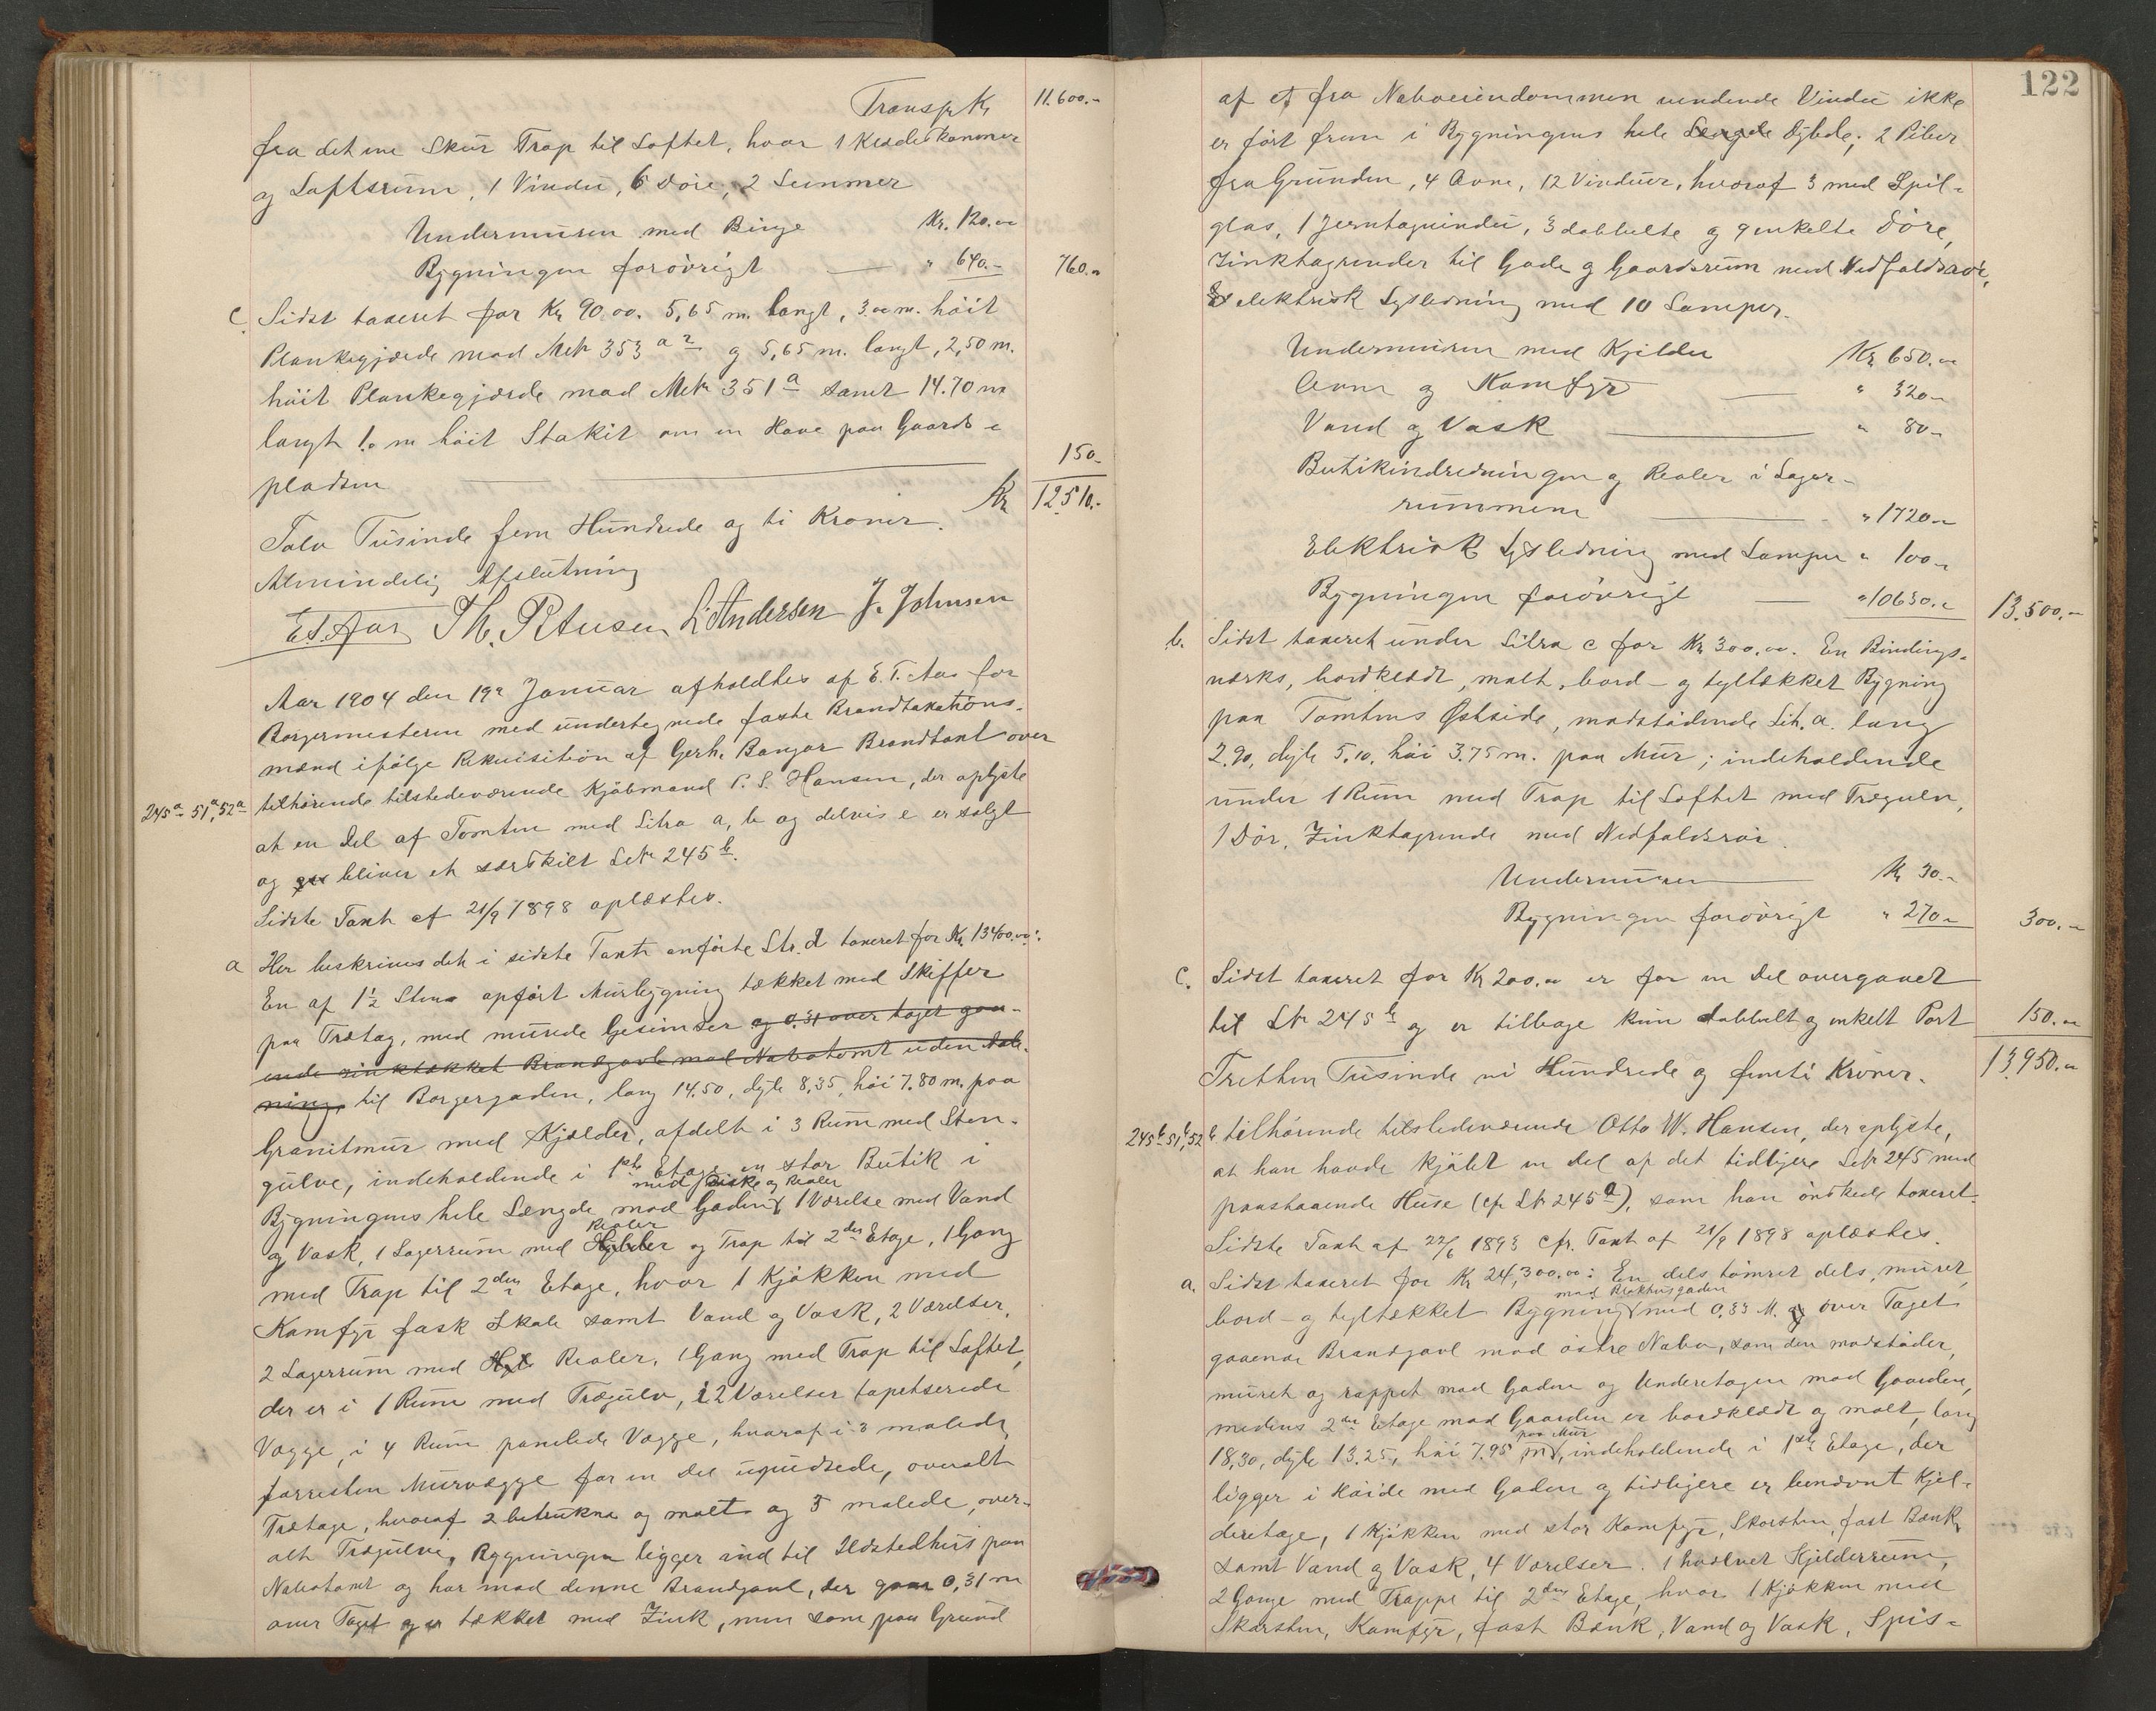 Transp Kr 11.600.-
fra det ene Skur Trap til Loftet, hvor 1 Klædeskammer
og Loftsrum, 1 Vindu, 6 Döre, 2 Lemmer
Undermuren med Binge Kr. 120.00
Bygningen forövrigt — " 640.- 760.-
c. Sidst taxeret for Kr 90.00. 5,65 m. langt, 3.00 m. höit
Plankegjærde mod Mtr 353 a 2 og 5,65 m. langt, 2,50 m.
höit Plankegjærde mod Mtr 351 a samt 14.70 m
langt 1.0 m höit Stakit om en Have paa Gaards-
pladsen 150.-
Kr 12510.-
Tolv Tusinde fem Hundrede og ti Kroner.
Almindelig Afslutning
E.T. Aas Th. Petersen L. Andersen J. Johnsen
Aar 1904 den 19de Januar afholdtes af E. T. Aas for
Borgermesteren med undertegnede faste Brandtaxations-
mænd ifölge Rekvisition af Gerh. Bangor Brandtaxt over
245a 51a, 52a tilhörende tilstedeværende Kjöbmand P. S. Hansen, der oplyste
at en Del af Tomten med Litra a, b og delvis e er solgt
og bliver et særskilt Letr 245 b.
Sidste Taxt af 21/9 1898 oplæstes.
a Her beskrives det i sidste Taxt anförte Litr. d taxeret for Kr 13400.00:
En af 1½ Stens opfört Murbygning tækket med Skiffer
paa Trætag, med murede Gesimser og 0.31 over taget gaa-
ende zinktækket Brandgavl mod Nabotomt uden Aab-
ning, til Borgergaden, lang 14.50, dyb 8,35, höi 7.80 m. paa
Granitmur med Kjælder, afdelt i 3 Rum med Sten-
gulve, indeholdende i 1ste Etage en stor Butik i
med Diske og Reoler
Bygningens hele Længde mod Gaden, 1 Værelse med Vand
Reoler
og Vask, 1 Lagerrum med Hylder og Trap til 2den Etage, 1 Gang
med Trap til 2den Etage, hvor 1 Kjökken med
Komfyr fast Skab samt Vand og Vask, 2 Værelser,
2 Lagerrum med Hyl Reoler, 1 Gang med Trap til Loftet,
der er i 1 Rum med Trægulv, i 2 Værelser tapetserede
Vægge, i 4 Rum panelede Vægge, hvoraf i 3 malede,
forresten Murvægge for en Del upudsede, overalt
Trætage, hvoraf 2 betrukne og malt og 5 malede, over-
alt Trægulve, Bygningen ligger ind til Ildstedhus paa
Nabotomt og har mod denne Brandgavl, der gaar 0,31 m
over Taget og er tækket med Zink, men som paa Grund
122
af et fra Naboeiendommen vendende Vindu ikke
er fört frem i Bygningens hele Længde Dybde; 2 Piber
fra Grunden, 4 Ovne, 12 Vinduer, hvoraf 3 med Speil-
glas, 1 Jerntagvindu, 3 dobbelte og 9 enkelte Döre,
Zinktagrender til Gade og Gaardsrum med Nedfaldsrör,
elektrisk Lysledning med 10 Lamper.
Undermuren med Kjelder Kr 650.00
Ovne og Komfyr — " 320.-
Vand og Vask — " 80.-
Butikindredningen og Reoler i Lager-
rummene — " 1720.-
Elektrisk Lysledning med Lamper " 100.-
Bygningen forövrigt — " 10630.- 13.500.-
b. Sidst taxeret under Litra c for Kr 300.00. En Bindings-
værks, bordklædt, malt, bord- og tegltækket Bygning
paa Tomtens Østside, modstödende Lit. a. lang
2.90, dyb 5.10, höi 3.75 m. paa Mur; indeholdende
under 1 Rum med Trap til Loftet med Trægulv,
1 Dör, Zinktagrende med Nedfaldsrör.
Undermuren — Kr 30.-
Bygningen forövrigt " 270.- 300.-
c. Sidst taxeret for Kr 200.00 er for en Del overgaaet
til Ltr 245 b og er tilbage kun dobbelt og enkelt Port 150.00
13.950.00
Tretten Tusinde ni Hundrede og femti Kroner.
245b 51b, 52b tilhörende tilstedeværende Otto W. Hansen, der oplyste,
at han havde kjöbt en Del af det tidligere Letr 245 med
paastaaende Huse (cfr Ltr 245 a), som han önskede taxeret.
Sidste Taxt af 22/6 1893 cfr. Taxt af 21/9 1898 oplæstes.
a. Sidst taxeret for Kr 24,300.00: En dels tömret dels muret,
mod Blokhusgaden
bord- og tegltækket Bygning med 0.33 M. over Taget
gaaende Brandgavl mod östre Nabo, som den modstöder,
muret og rappet mod Gaden og Underetagen mod Gaarden,
medens 2den Etage mod Gaarden er bordklædt og malt, lang
paa Mur
18,30, dyb 13.25, höi 7.95 m, indeholdende i 1ste Etage, der
ligger i Höide med Gaden og tidligere er benævnt Kjel-
deretage, 1 Kjökken med stor Komfyr, Skorsten, fast Bænk,
samt Vand og Vask, 4 Værelser. 1 hvælvet Kjelderrum,
2 Gange med Trappe til 2den Etage, hvor 1 Kjökken med
Skorsten, Komfyr, fast Bænk, Vand og Vask, Spis-